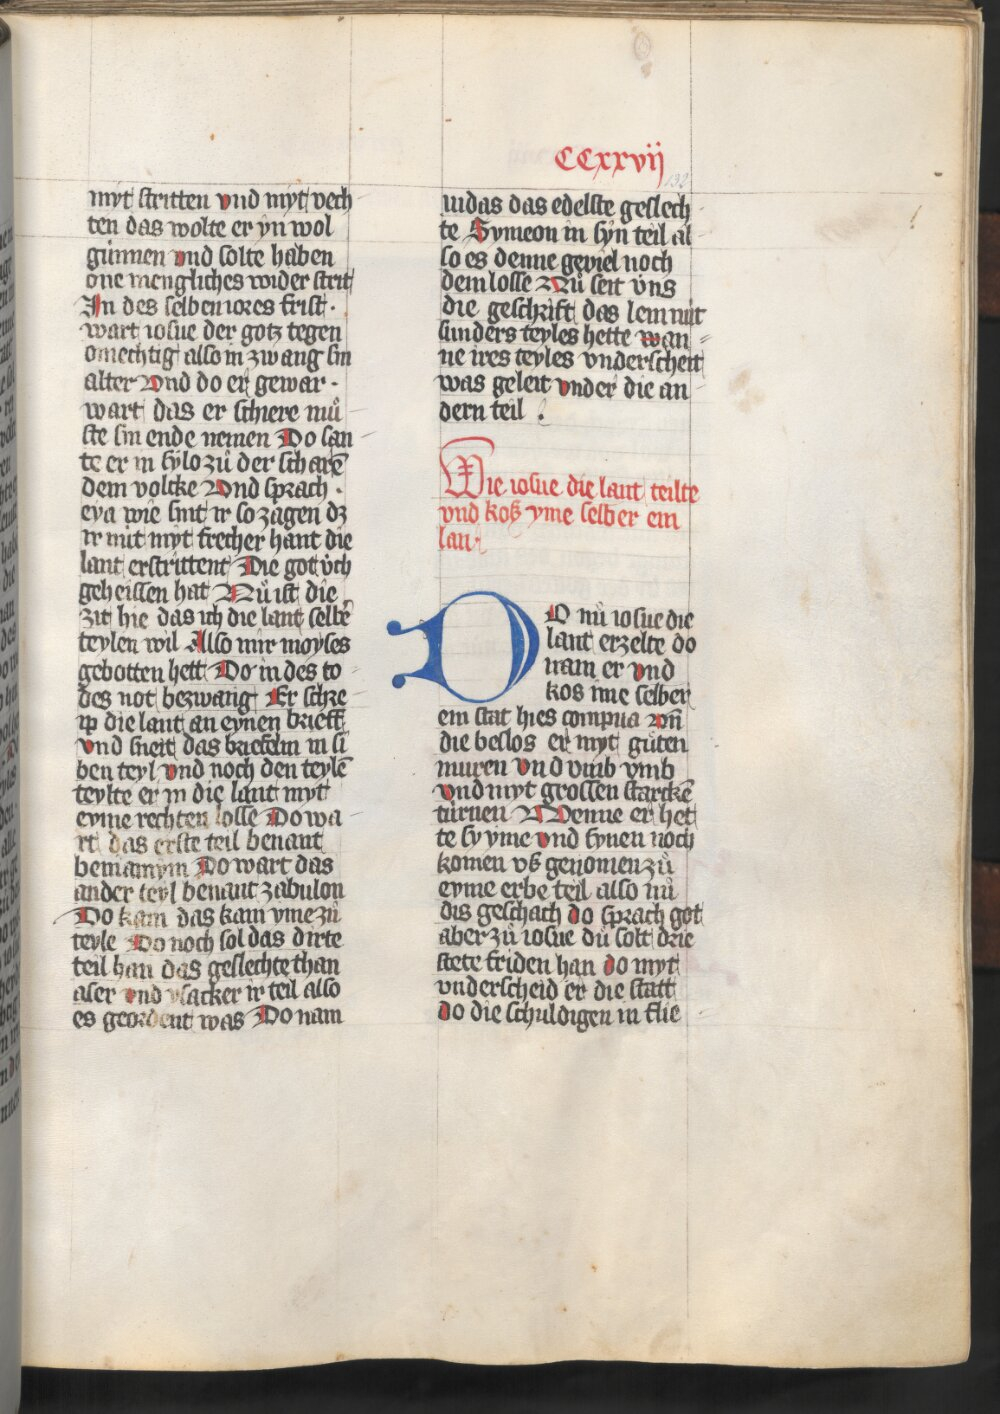 CCxxvij
132
myt stritten vnd myt vech
ten das wolte er yn wol
günnen vnd solte haben
one mengliches wider strit
In des selben iores frist ·
wart iosue der gotz tegen
omechtig also in zwang sin
alter Vnd do er gewar ·
wart das er schiere mů
ste sin ende nemen Do san
te er in sylo zů der scharē
dem volcke Vnd sprach ·
eya wie sint ir so zagen dz
ir nit myt frecher hant die
lant erstrittent Die got ůch
geheissen hat Nů ist die
zit hie das ich die lant selbē
teylen wil Also mir moyses
gebotten hett Do in des to
des not bezwang Er schre
ip die lant an eynen brieff
vnd sneit das briefelin in si
ben teyl vnd noch den teylē
teylte er in die lant myt
eyme rechten losse Do wa
rt das erste teil benant
beniamym Do wart das
ander teyl benant zabulon
Do kam das kam yme zů
teyle Do noch sol das dirte
teil han das geslechte than
aser vnd ysacker ir teil also
es geordent was Do nam
iudas das edelste geslech
te Symeon in syn teil al
so es denne geviel noch
dem losse Nů seit vns
die geschrift das leui nit
sunders teyles hette wan
ne ires teyles vnderscheit
was geleit vnder die an
dern teil .
Wie iosue die lant teilte
vnd koß yme selber ein
lant
DO nů iosue die
lant erzelte do
nam er vnd
kos ime selber
ein stat hies compna vn̄
die beslos er myt gůten
muren vnd vmb vmb
vnd myt grossen starckē
türnen Wenne er het
te sy yme vnd synen noch
komen vß genomen zů
eyme erbe teil also nů
dis geschach do sprach got
aber zů iosue du solt drie
stete friden han do myt
vnderscheid er die statt
do die schuldigen in flie